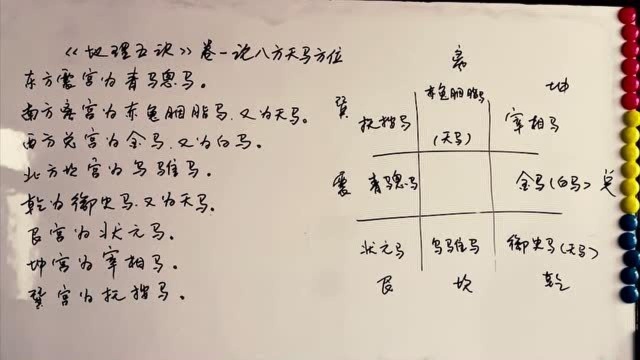 《地理五诀》卷一论八方天马方位
东方震宫为青马恩马。
南方离宫为赤兔胭脂马,又为天马。
西方兑宫为金马,又为白马。
北方坎宫为乌骓马。
乾为御史马,又为天马。
艮宫为状元马。
坤宫为宰相马。
巽宫为抚按马。
离
巽 坤
抚按马 赤兔胭脂马 宰相马
(天马)
震 青马恩马 金马(白马) 兑
状元马 乌骓马 御史马(天马)
艮 坎 乾